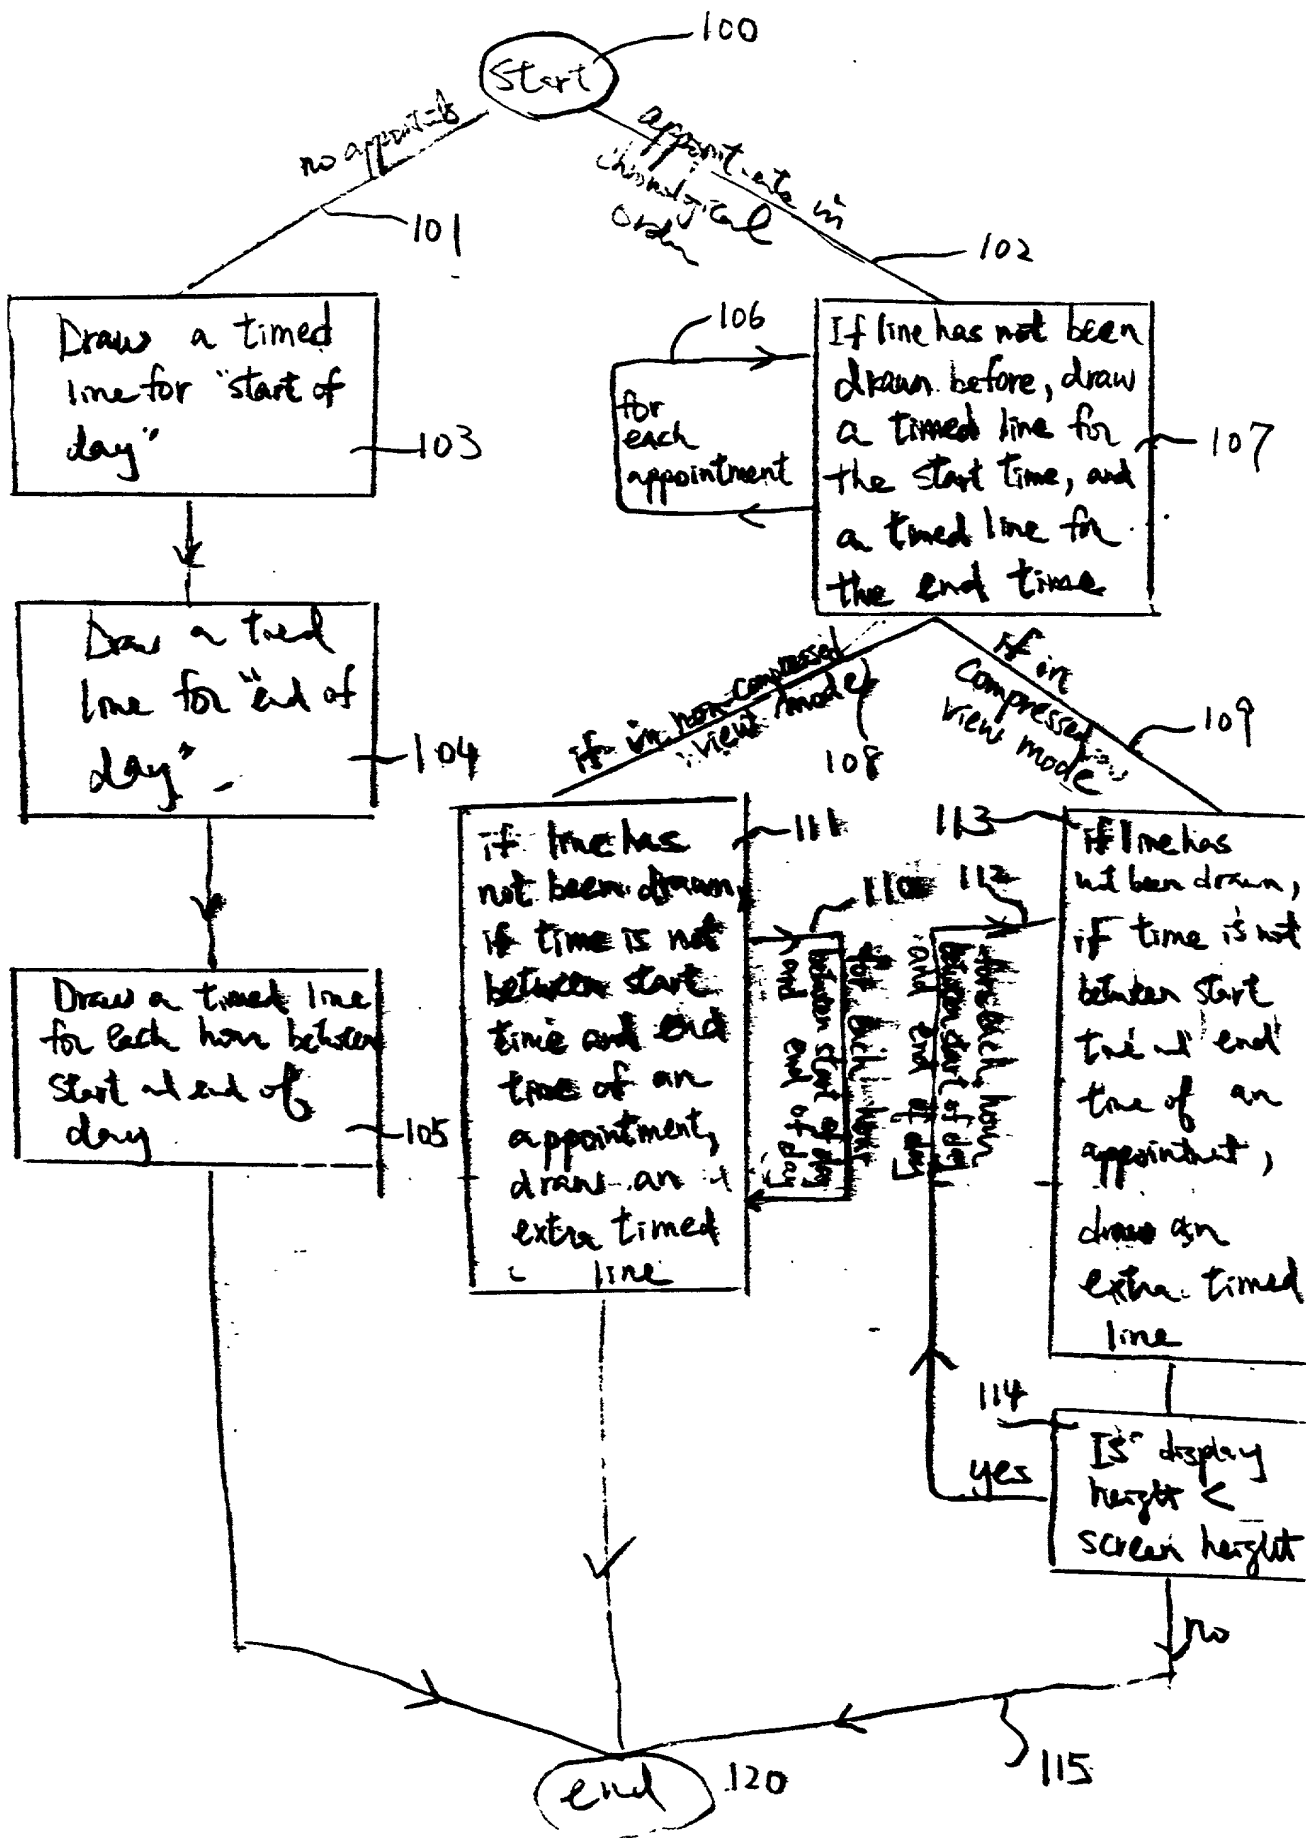 100
Start
no appoint-ts
appoint-ents in
chronological
order
101
102
Draw a timed
line for "start of
day"
103
106
for
each
appointment
If line has not been
drawn before, draw
a timed line for
the start time, and
a timed line for
the end time
107
Draw a timed
line for "end of
day"
104
if in non-compressed
view mode
108
if in
compressed
view mode
109
Draw a timed line
for each hour between
start and end of
day
105
if line has
not been drawn,
if time is not
between start
time and end
time of an
appointment,
draw an
extra timed
line
111
110
for each hour
between start of day
and end of day
112
for each hour
between start of day
and end of day
113
if line has
not been drawn,
if time is not
between start
time and end
time of an
appointment,
draw an
extra timed
line
114
Is display
height <
screen height
yes
no
115
end
120